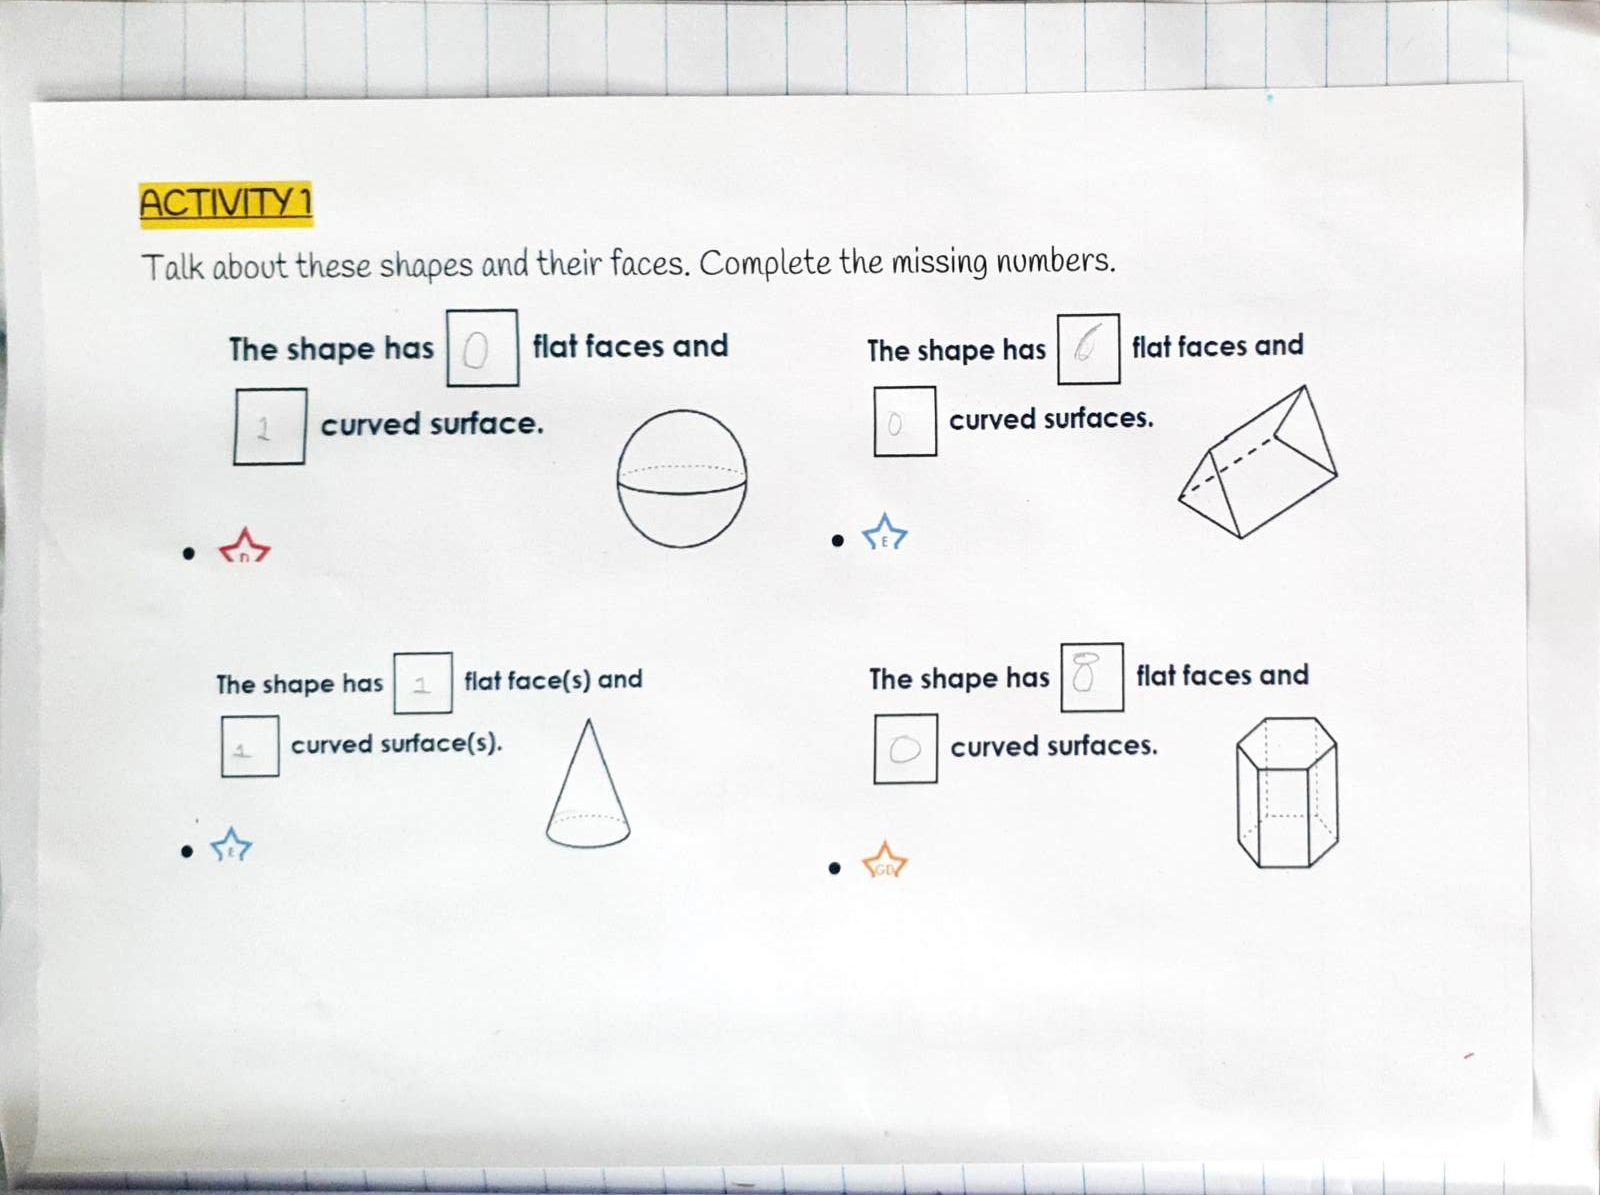 ACTIVITY 1
Talk about these shapes and their faces. Complete the missing numbers.
The shape has 0 flat faces and
1 curved surface.
D
The shape has 6 flat faces and
0 curved surfaces.
E
The shape has 1 flat face(s) and
1 curved surface(s).
E
The shape has 8 flat faces and
0 curved surfaces.
GD